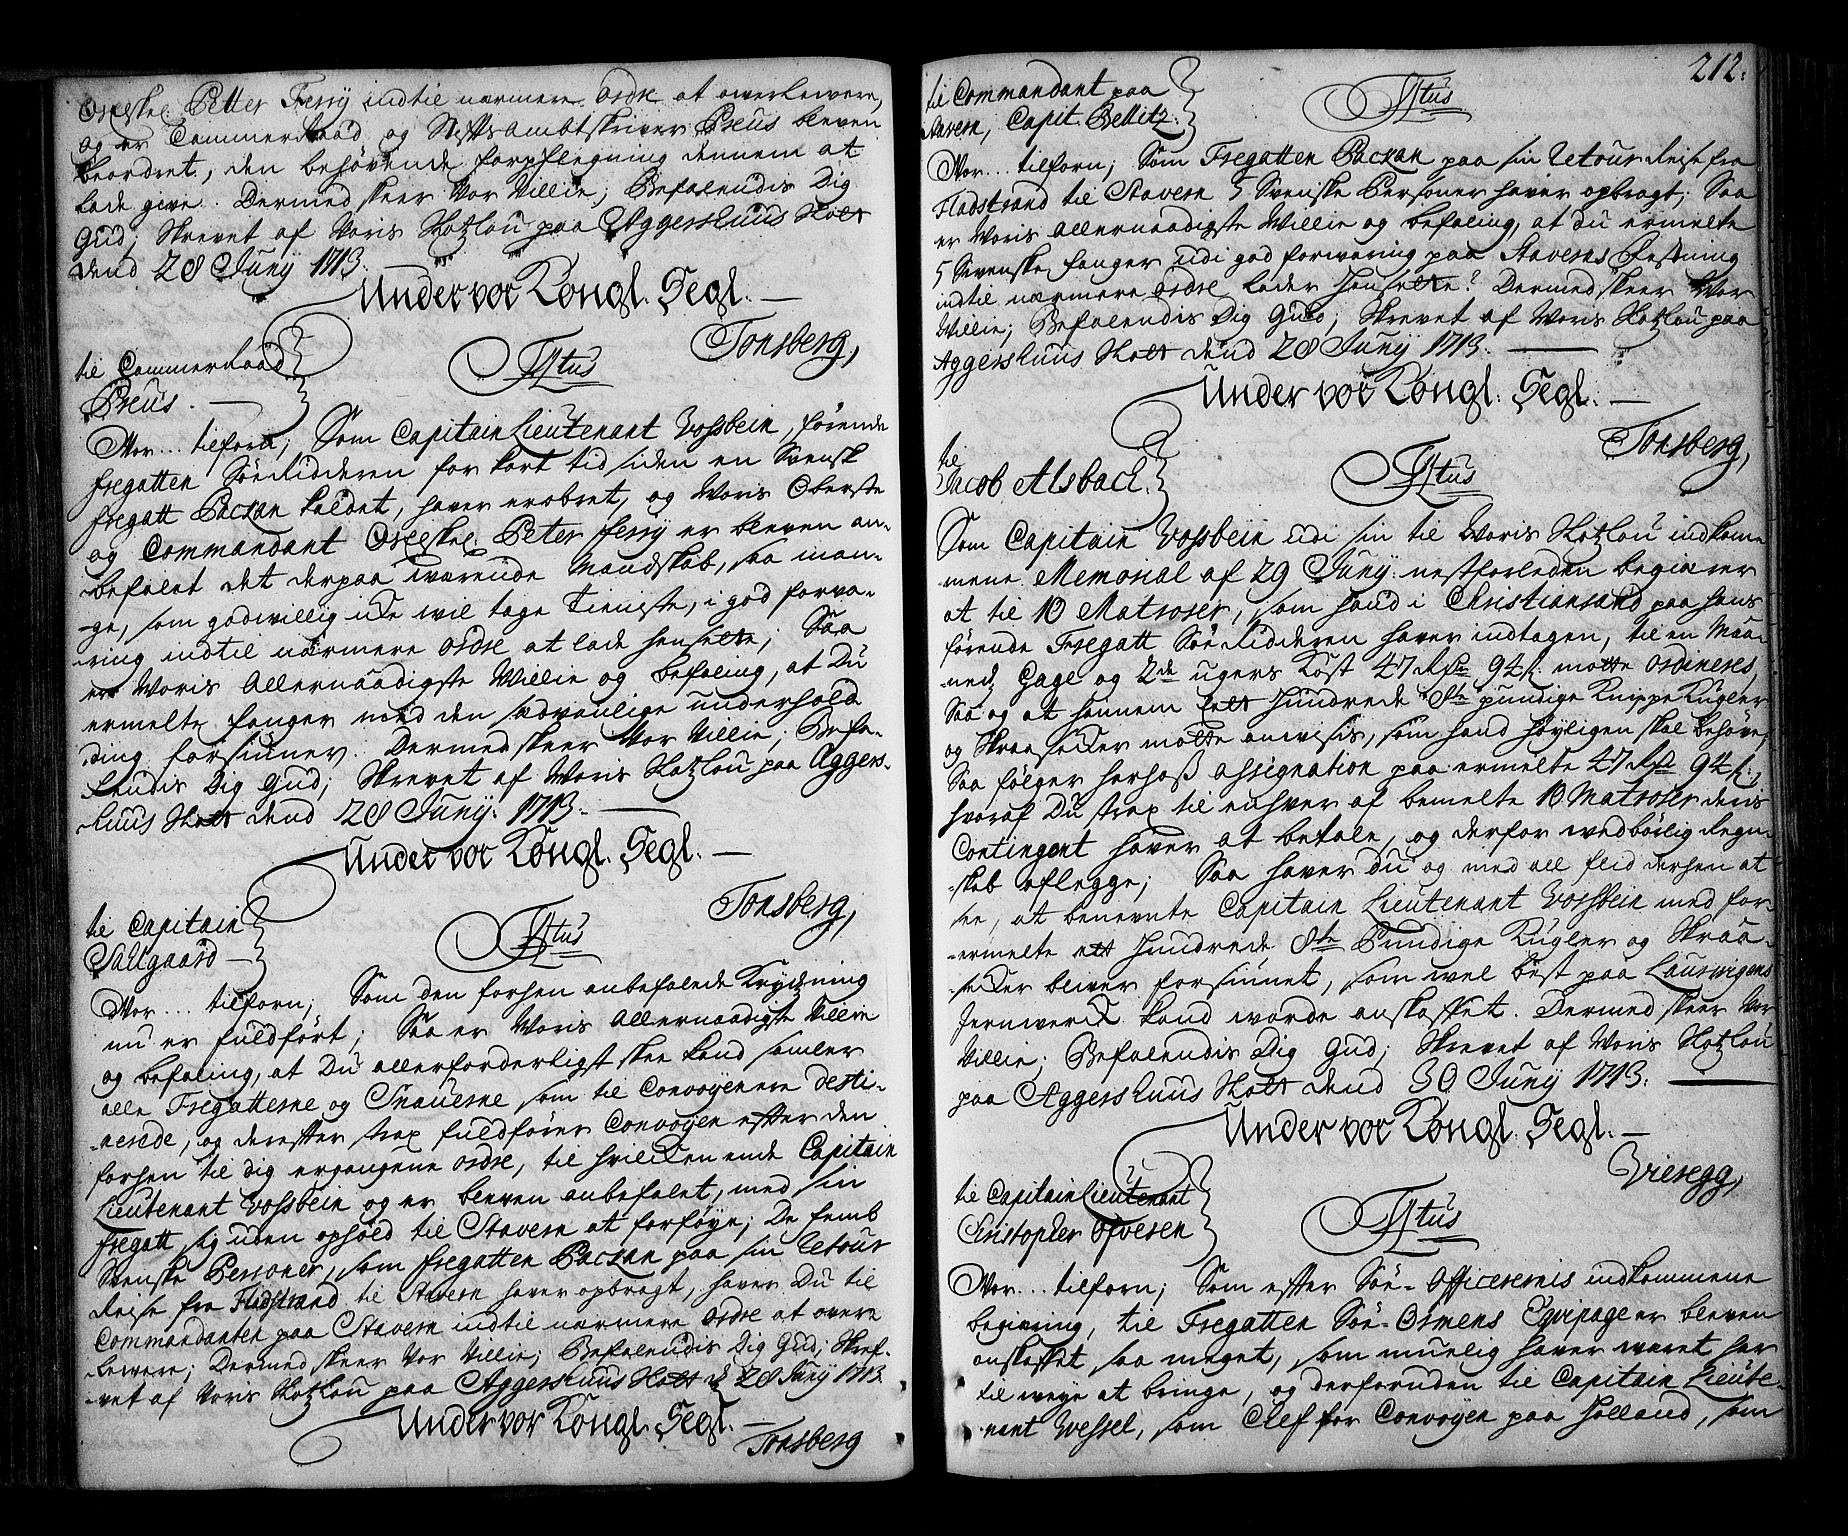 Petter Ferry indtil nærmere Ordre at overlewere,
og er Commerraad og Stiftsambtskriver Preus bleven
beordret, den behøvende forpflegning dennem at
lade give. Dermed skeer Vor Villie; Befalendis Dig
Gud; Skrevet af Voris Slotzlou paa Aggershuus Slott
dend 28 Junÿ 1713.
Under vor Kongl. Segl.
Tonsberg,
til Commerraad
Preus.
Ftus
Vor... tilforn; Som Capitain Lieutenant Vossbein, førende
fregatten Søe Ridderen for kort tid siden en Svensk
fregatt Packan kaldet, haver erobret, og Voris Oberste
og Commandant Peter Ferry er bleven an-
befalet det derpaa værende Mandskab, saa man-
ge, som godwillig icke wil tage Tieniste, i god forva-
ring indtil nærmere Ordre at lade henselte; Saa
er Voris Allernaadigste Villie og befaling, at Du
ermelte fanger med den sædvanlige underhold-
ding forsiuner. Dermed skeer Vor Villie; Befa-
lendis Dig Gud; Skrevet af Voris Slotzlou paa Aggers-
huus Slott dend 28 Junÿ. 1713.
Under vor Kongl. Segl.
Tonsberg,
til Capitain
Sallgaard
Ftus
Vor... tilforn; Som den forhen anbefalede Krydzning
nu er fuldført; Saa er Voris Allernaadigste Villie
og befaling, at Du allerforderligst skee kand samler
alle Fregatterne og Snauerne som til Convoyen ere desti-
nerede, og derefter strax fuldfører Convoyen efter den
forhen til dig ergangene ordre, til hvilcken ende Capitain
Lieutenant Vossbein og er bleven anbefalet, med sin
fregatt sig uden ophold til Stavern at forføye; De femb
Svenske Personer, som fregatten Packan paa sin Retour
Reise fra Fladstrand til Stavern haver opbragt, haver Du til
Commandanten paa Stavern indtil nærmere Ordre at over-
lewere; Dermed skeer Vor Villie; Befalendis Dig Gud; Skref-
vet af Voris Slotzlou paa Aggershuus Slott d 28 Junÿ 1713.
Under vor Kongl. Segl.
Tonsberg
212.
til Commandant paa
Stavern, Capit. Bellitz.
Ftus
Vor... tilforn; Som Fregatten Packan paa sin Retour Reise fra
Fladstrand til Stavern 5 Svenske Personer haver opbragt; Saa
er Voris Allernaadigste Willie og befaling, at du ermelte
5 Svenske fanger udi god forwaring paa Staverns festning
indtil nærmere ordre lader henselte? Dermed skeer Vor
Villie; Befalendis Dig Gud; Skrevet af Voris Slotzlou paa
Aggershuus Slott dend 28 Junÿ 1713.
Under vor Kongl. Segl.
Tonsberg,
til
Jacob Alsbach.
Ftus
Som Capitain Vossbein udi sin til Voris Slotzlou indkom-
mene Memorial af 29 Junÿ nestforleden begiærer
at til 10 Matroser, som hand i Christiansand paa hans
førende Fregatt Søe Ridderen haver indtagen, til en Maa-
nedz Gage og 2de ugers Kost 47 Rdr 94 s: motte ordineres,
Saa og at hannem ett hundrede 8te pundige Knippe Kugler
og Skraa secker motte anvisis, som hand høyligen skal behøve;
Saa følger herhoß assignation paa ermelte 47 Rdr 94 s:,
hvoraf Du strax til enhver af bemelte 10 Matroser deris
Contingent haver at betale, og derfor wedbørlig Regn-
skab aflegge; Saa haver du og med all flid derhen at
see, at benevnte Capitain Lieutenant Vossbein med for-
ermelte ett hundrede 8te Pundige Kugler og Skraa-
secker bliver forsiunet, som wel best paa Laurwigens
Jernwerck kand worde anskaffet. Dermed skeer Vor
Villie; Befalendis Dig Gud; Skrevet af Voris Slotzlou
paa Aggershuus Slott dend 30 Junÿ 1713.
Under vor Kongl. Segl.
Vieregg,
til Capitain Lieutenant
Christopher Ofvesen
Ftus
Vor... tilforn; Som efter Søe-Officerernis indkommene
begiering, til Fregatten Søe-Ormens Eqvipage er bleven
anskaffet saa meget, som muelig haver weret her
til weye at bringe, og derforuden til Capitain Lieute-
nant Wessel, som Chef for Convoyen paa Holland, som